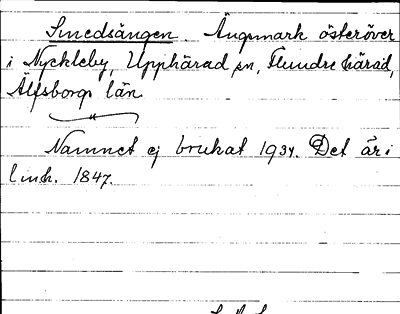 Smedsängen. Ängsmark österöver
i Nyckleby, Upphärad sn, Flundre härad,
Älfsborgs län
Namnet ej brukat 1934. Det är i
1847.